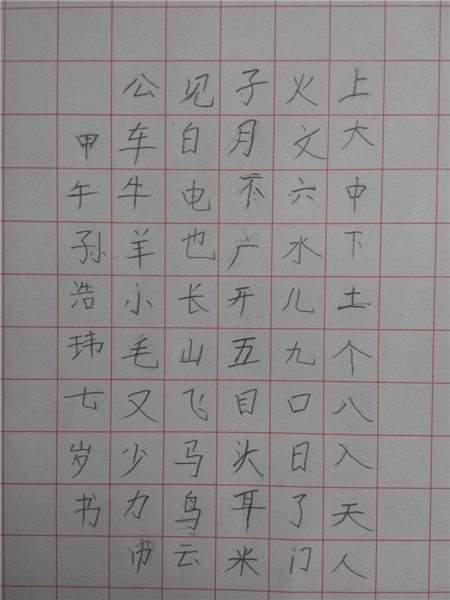 上大中下土个八入天人
火文六水儿九口日了门
子月不广开五目头耳米
见白电也长山飞马鸟云
公车牛羊小毛又少力
甲午孙浩玮七岁书